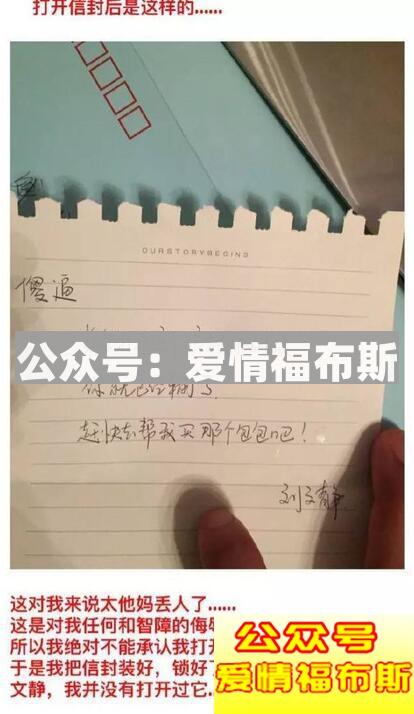 打开信封后是这样的......
OURSTORYBEGINS
傻逼
公众号：爱情福布斯
你就已经输了
赶快去帮我买那个包包吧！
刘文静
这对我来说太他妈丢人了......
这是对我任何和智障的侮辱
所以我绝对不能承认我打开
于是我把信封装好，锁好了
文静，我并没有打开过它..
公众号
爱情福布斯